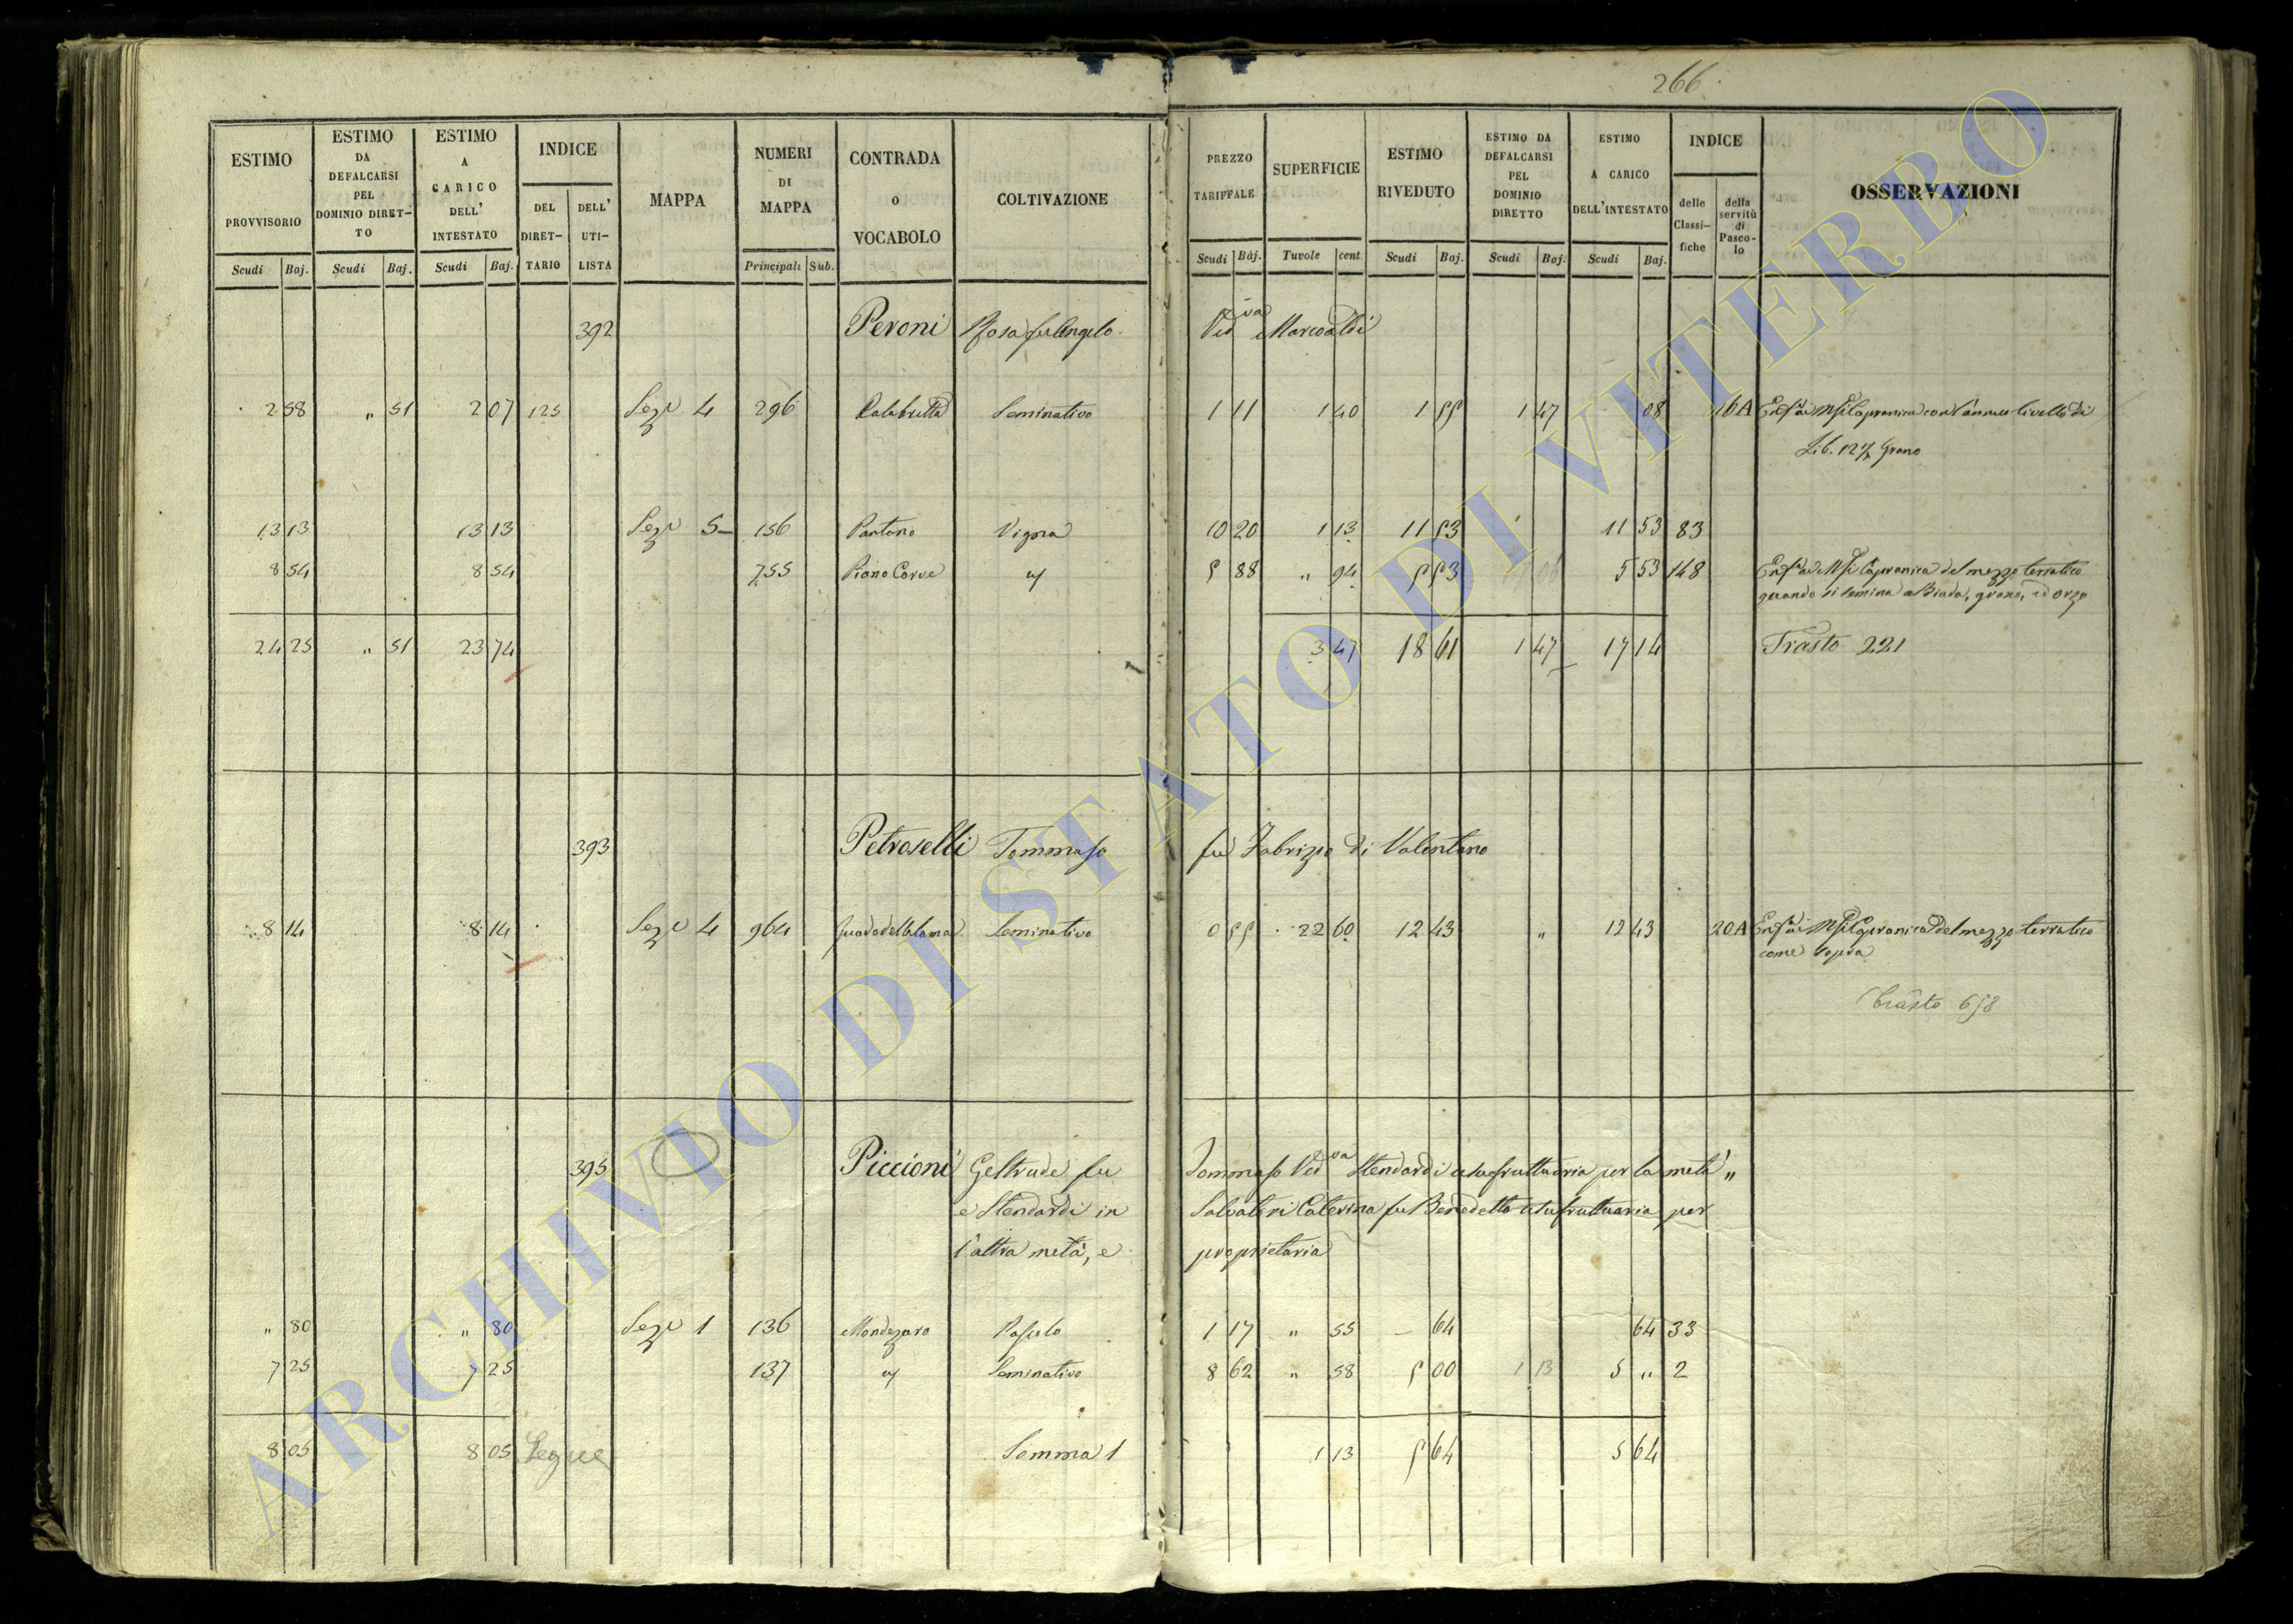 266.
ESTIMO PROVVISORIO
ESTIMO DA DEFALCARSI PEL DOMINIO DIRET-TO
ESTIMO A CARICO DELL' INTESTATO
INDICE
DEL DIRET-TARIO
DELL' UTI-LISTA
MAPPA
NUMERI DI MAPPA
CONTRADA o VOCABOLO
COLTIVAZIONE
PREZZO TARIFFALE
SUPERFICIE
ESTIMO RIVEDUTO
ESTIMO DA DEFALCARSI PEL DOMINIO DIRETTO
ESTIMO A CARICO DELL'INTESTATO
INDICE
delle Classi-fiche
della servitù di Pasco-lo
OSSERVAZIONI
Scudi Baj. Scudi Baj. Scudi Baj. Principali Sub. Scudi Baj. Tavole cent. Scudi Baj. Scudi Baj. Scudi Baj.
392 Peroni Rosa fu Angelo Ved.va Marcoaldi
2 58 " 51 2 07 125 Sez.e 4 296 Calabretta Seminativo 1 11 1 40 1 55 1 47 08 16A con l'annuo livello di
Lib. 12 ½ Grano
13 13 13 13 Sez.e 5 156 Pantano Vigna 10 20 1 13 11 53 11 53 83
8 54 8 54 755 Piano Corve 5 88 " 94 5 53 5 53 148 Capranica del mezzo terratico
quando si semina a Biada, grano, ed orzo
24 25 " 51 23 74 3 47 18 61 1 47 17 14 Trasto 221
393 Petroselli Tommaso fu Fabrizio di Valentano
8 14 8 14 Sez.e 4 964 Guado della lama Seminativo 0 55 22 60 12 43 " 12 43 20A Capranica del mezzo terratico
come sopra
Trasto 658
395 Piccioni Geltrude fu Tommaso Ved.va Stendardi usufruttuaria per la metà "
e Stendardi in Salvatori Caterina fu Benedetto usufruttuaria per
l'altra metà, e proprietaria
" 80 " 80 Sez.e 1 136 Mondezaro Pascolo 1 17 " 55 – 64 64 33
7 25 7 25 137 Seminativo 8 62 " 58 5 00 1 13 5 " 2
8 05 8 05 Segue Somma 1 1 13 5 64 5 64
ARCHIVIO DI STATO DI VITERBO